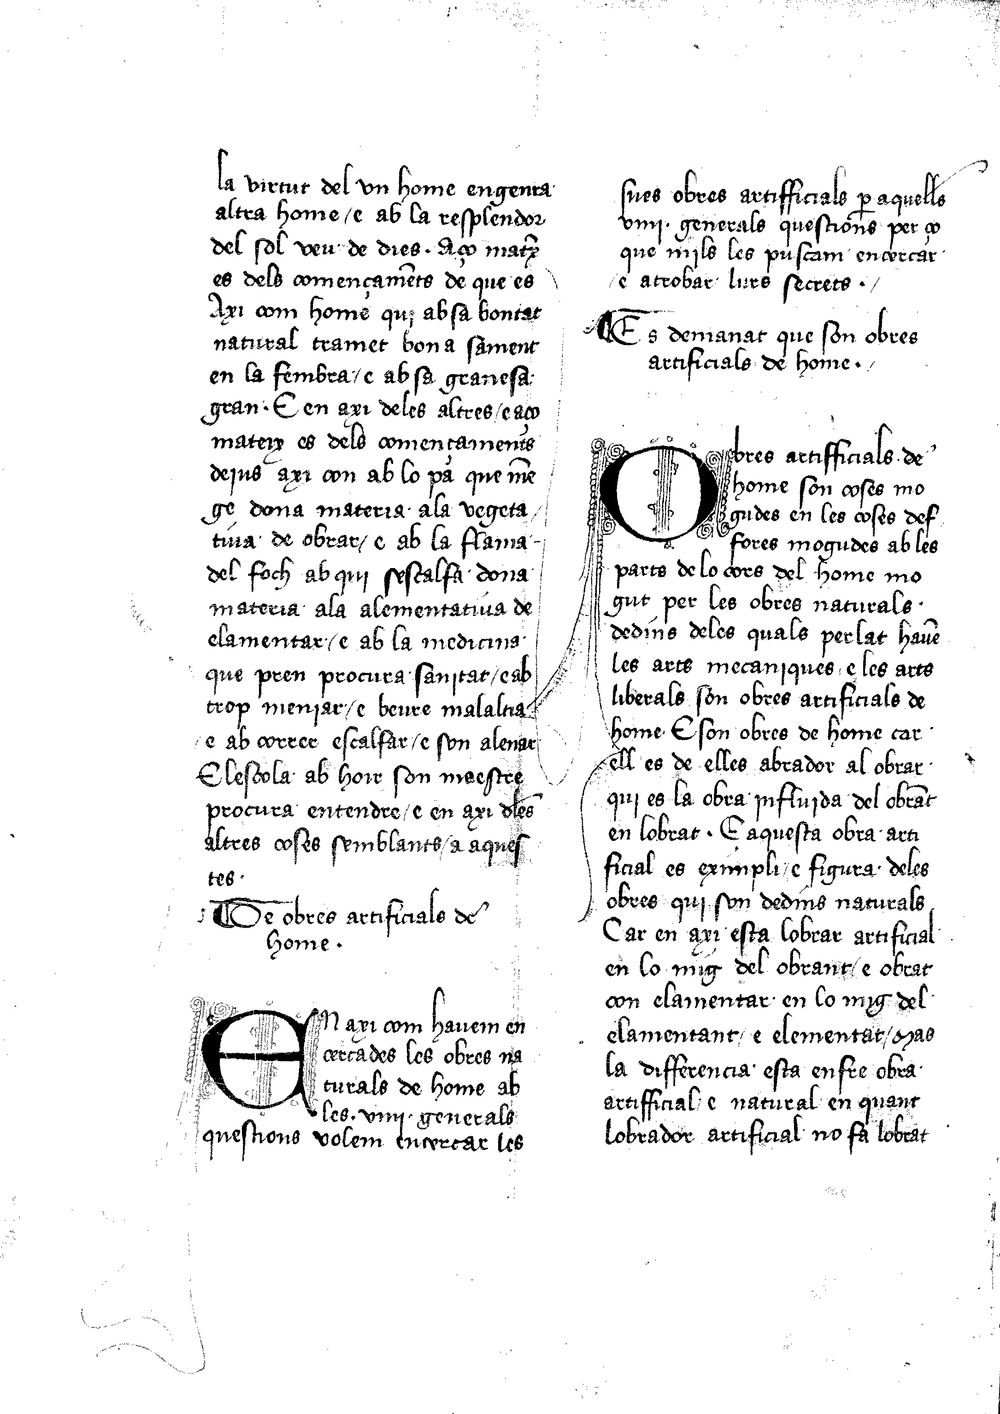 la virtut del vn home engenra
altra home / e ab la resplendor
del sol veu de dies. Aço matex̄
es dels començamēts de que es
Axi com home qui ab sa bontat
natural tramet bona sament
en la fembra / e ab sa granesa
gran. E en axi deles altres / e aço
mateix es dels començaments
dejus axi con ab lo pa que mē
ge dona materia ala vegeta
tiua de obrar / e ab la flama
del foch ab qui sescalfa dona
materia ala alementatiua de
elamentar / e ab la medicina
que pren procura sanitat / e ab
trop meniar / e beure malaltia
e ab correr escalfar / e son alenar
E lescola ab hoir son maestre
procura entendre / e en axi dles
altres coses semblants / a aques
tes.
De obres artificials de
home.
EN axi com hauem en
cercades les obres na
turals de home ab
les. viiii. generals
questions volem encercar les
sues obres artifficials p aquells
viiii. generals questions per ço
que mils les puscam encercar
e atrobar lurs secrets. /
Es demanat que son obres
artificials de home. /
Obres artifficials de
home son coses mo
gudes en les coses def
fores mogudes ab les
parts de lo cors del home mo
gut per les obres naturals
dedins deles quals perlat hauē
les arts mecaniques e les arts
liberals son obres artificials de
home E son obres de home car
ell es de elles abrador al obrar
qui es la obra influida del obrāt
en lobrat. E aquesta obra arti
ficial es eximpli / e figura deles
obres qui son dedins naturals
Car en axi esta lobrar artificial
en lo mig del obrant / e obrat
con elamentar en lo mig del
elamentant / e elementat / Mas
la differencia esta enfre obra
artifficial / e natural en quant
lobrador artificial no fa lobrat